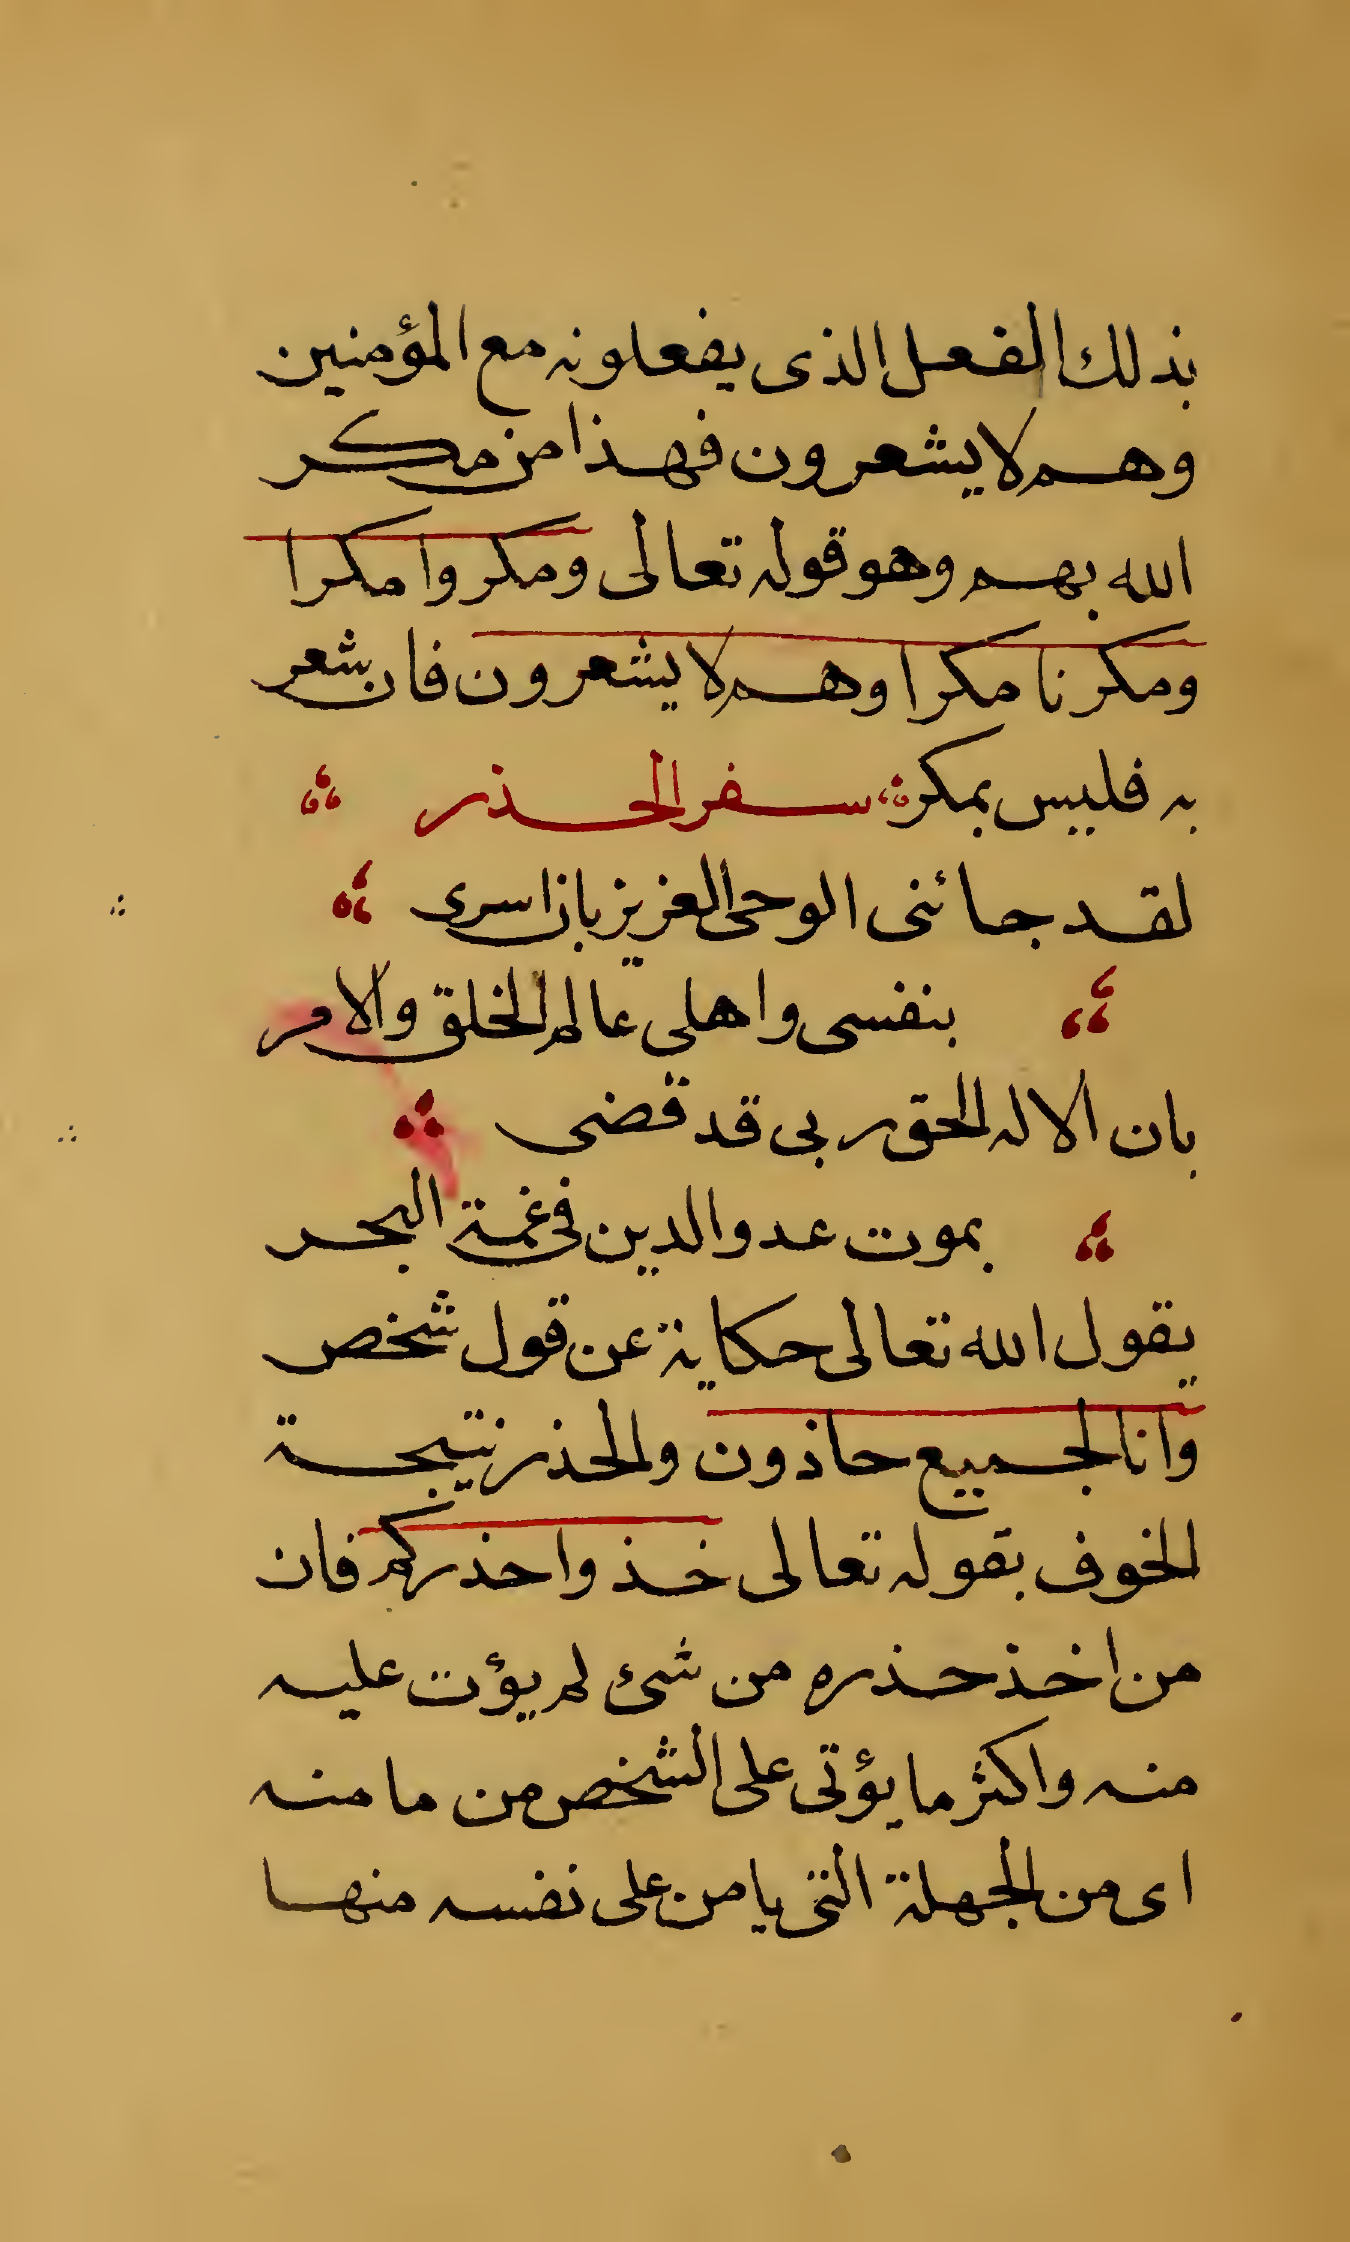 بذلك الفعل الذى يفعلونه مع المؤمنين
وهم لا يشعرون فهذا من مكر
الله بهم وهو قوله تعالى ومكروا مكرا
ومكرنا مكرا وهم لا يشعرون فان شعر
به فليس بمكر سفر الحذر
لقد جائنى الوحى العزيز بان اسرى
بنفسى واهلى عالم الخلق والامر
بان الاله الحق ربى قد قضى
بموت عدو الدين فى غمة البحر
يقول الله تعالى حكاية عن قول شخص
وانا لجميع حاذون والحذر نتيجة
الخوف بقوله تعالى خذ واحذركم فان
من اخذ حذره من شئ لم يؤت عليه
منه واكثر ما يؤتى على الشخص من مامنه
اى من الجهلة التى يامن على نفسه منها